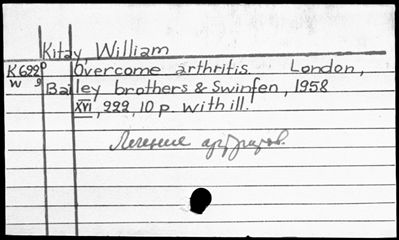 Kitay, William
K 622 Overcome arthritis. London,
W 9 Bailey brothers & Swinfen, 1958
XVI, 222, 10 p. with ill.
Лечение артритов.